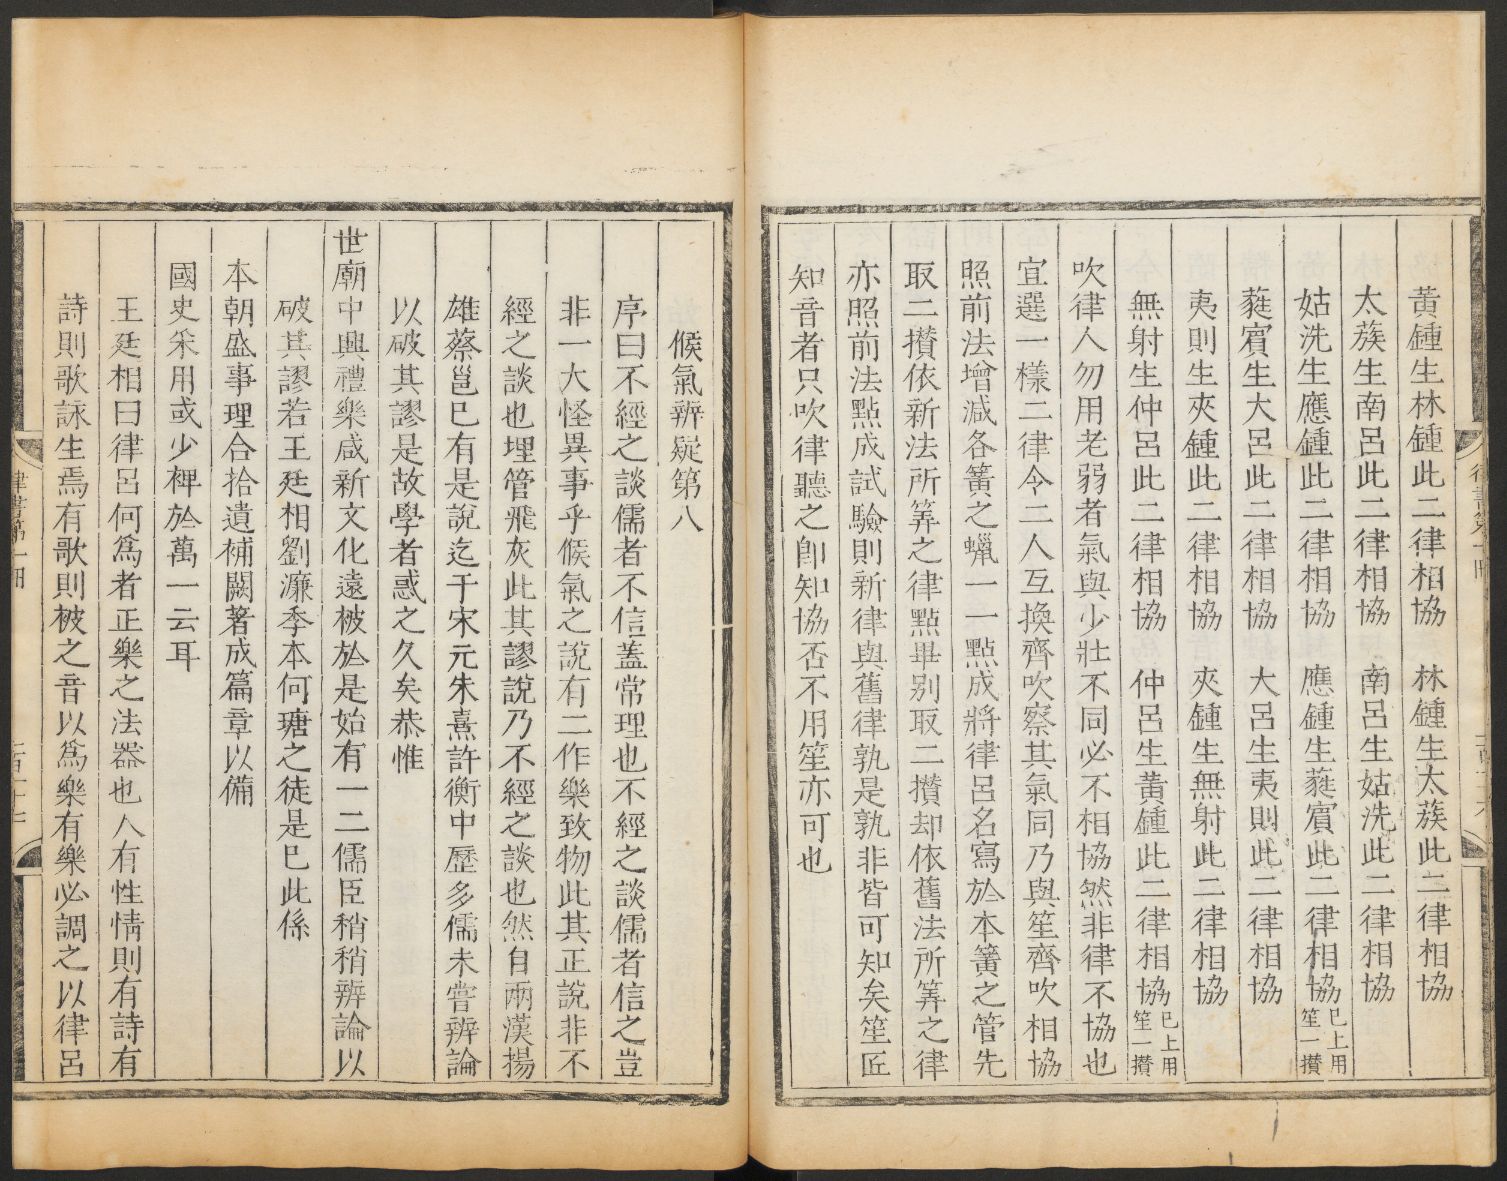 黃鍾生林鍾此二律相協　林鍾生太蔟此二律相協
太蔟生南呂此二律相協　南呂生姑洗此二律相協
姑洗生應鍾此二律相協　應鍾生蕤賓此二律相協已上用笙一攢
蕤賓生大呂此二律相協　大呂生夷則此二律相協
夷則生夾鍾此二律相協　夾鍾生無射此二律相協
無射生仲呂此二律相協　仲呂生黃鍾此二律相協已上用笙一攢
吹律人勿用老弱者氣與少壯不同必不相協然非律不協也
宜選一樣二律令二人互換齊吹察其氣同乃與笙齊吹相協
照前法增減各簧之蠟一一點成將律呂名寫於本簧之管先
取二攢依新法所筭之律點畢別取二攢却依舊法所筭之律
亦照前法點成試驗則新律與舊律孰是孰非皆可知矣笙匠
知音者只吹律聽之卽知協否不用笙亦可也
候氣辨疑第八
序曰不經之談儒者不信蓋常理也不經之談儒者信之豈
非一大怪異事乎候氣之說有二作樂致物此其正說非不
經之談也埋管飛灰此其謬說乃不經之談也然自兩漢揚
雄蔡邕已有是說迄于宋元朱熹許衡中歷多儒未嘗辨論
以破其謬是故學者惑之久矣恭惟
世廟中興禮樂咸新文化遠被於是始有一二儒臣稍稍辨論以
破其謬若王廷相劉濂季本何瑭之徒是已此係
本朝盛事理合拾遺補闕著成篇章以備
國史采用或少裨於萬一云耳
王廷相曰律呂何爲者正樂之法器也人有性情則有詩有
詩則歌詠生焉有歌則被之音以爲樂有樂必調之以律呂
律書第一冊